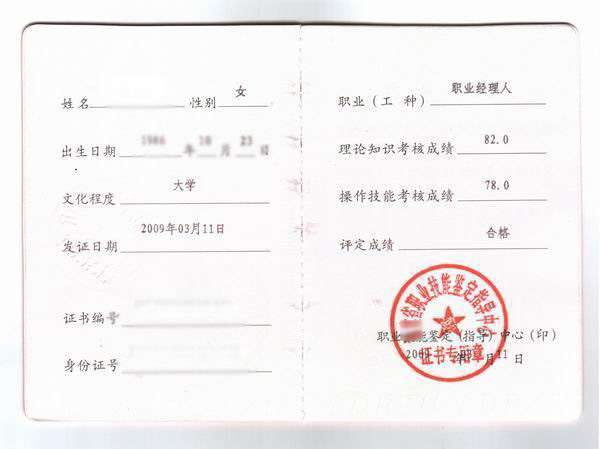 姓名 性别 女
出生日期 1986 年 10 月 23 日
文化程度 大学
发证日期 2009年03月11日
证书编号
身份证号
职业（工 种） 职业经理人
理论知识考核成绩 82.0
操作技能考核成绩 78.0
评定成绩 合格
省职业技能鉴定指导中心
证书专用章
职业技能鉴定（指导）中心（印）
2009 年 03 月 11 日